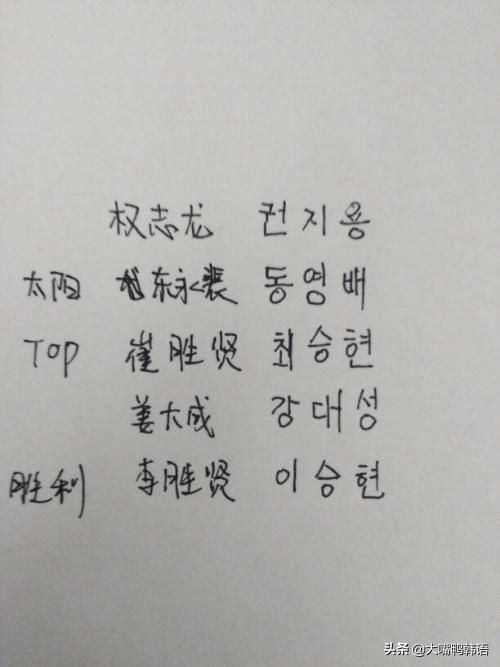 权志龙 권지용
太阳 东永裴 동영배
Top 崔胜贤 최승현
姜大成 강대성
胜利 李胜贤 이승현
头条 @大嘴鸭韩语